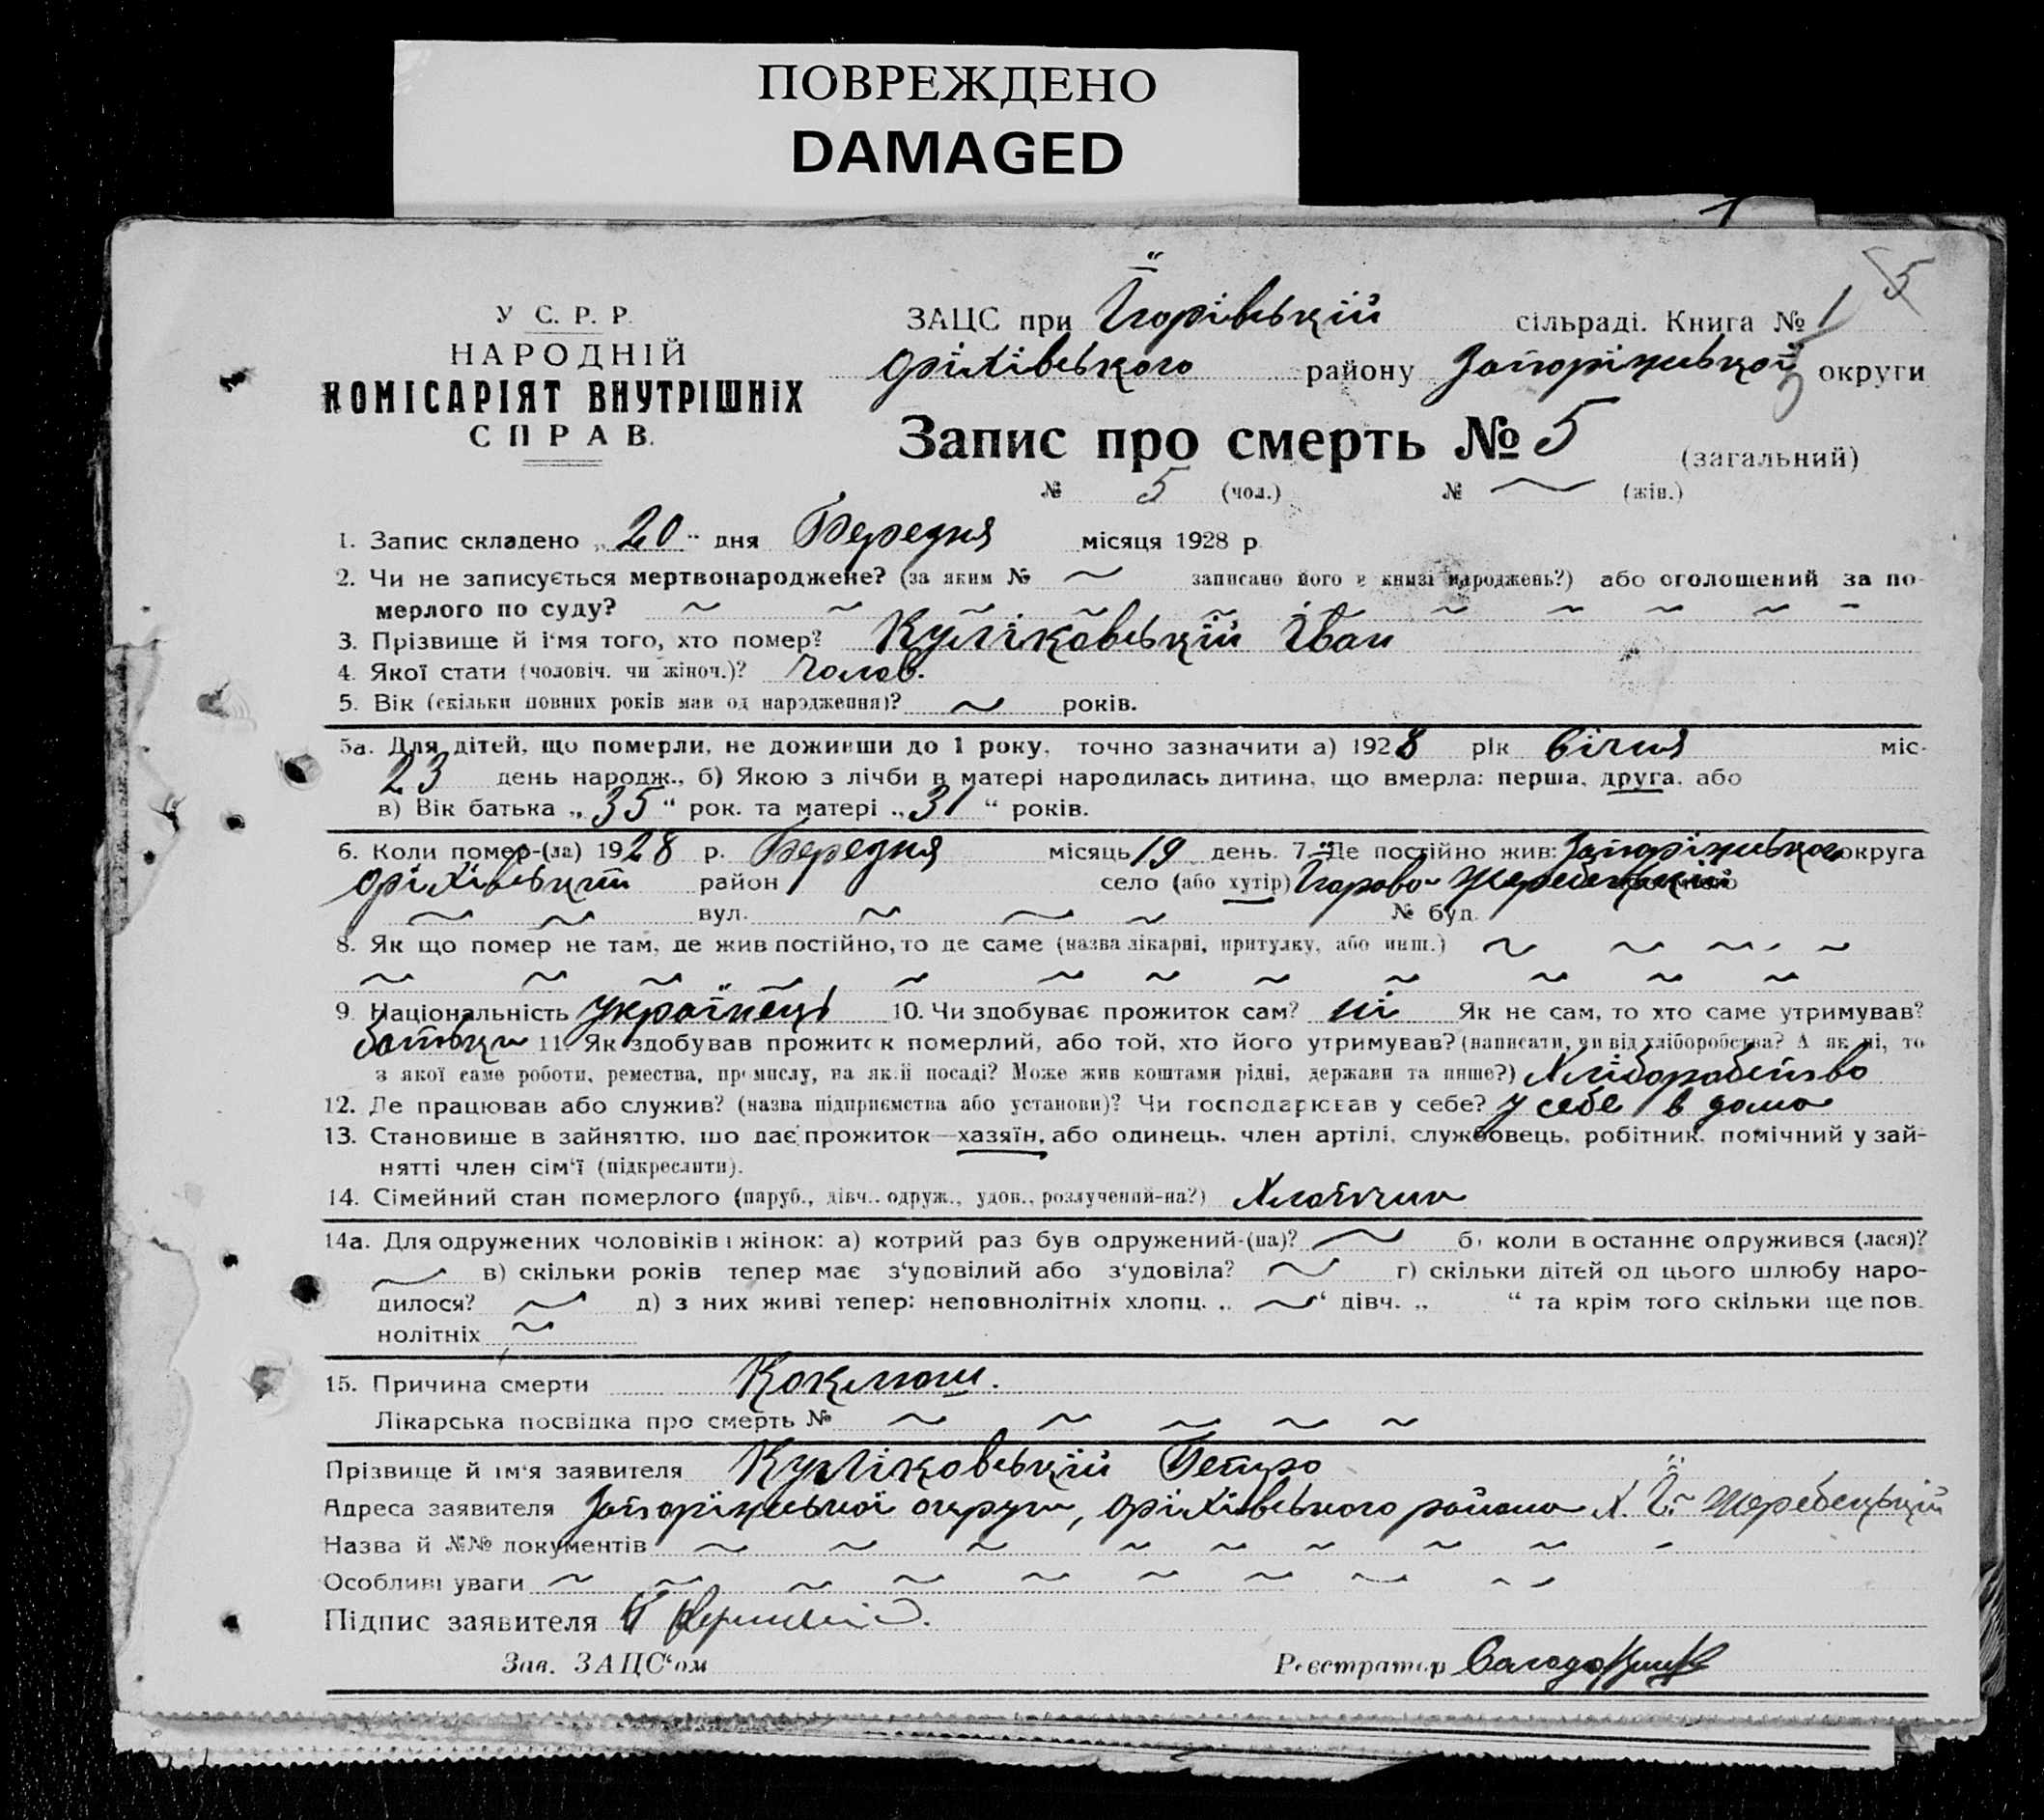 ПОВРЕЖДЕНО
DAMAGED
5
У С. Р. Р.
НАРОДНІЙ
КОМІСАРІЯТ ВНУТРІШНІХ
СПРАВ.
ЗАЦС при Їгорівській сільраді. Книга № 1
Оріхівського району Запоріжської округи
Запис про смерть № 5 (загальний)
№ 5 (чол.) № ~ (жін.)
1. Запис складено „20“ дня Березня місяця 1928 р
2. Чи не записується мертвонароджене? (за яким № ~ записано його в книзі народжень?) або оголошений за по-
мерлого по суду? ~ ~ ~ ~ ~ ~ ~ ~ ~ ~
3. Прізвище й ім‘я того, хто помер? Куліковський Іван
4. Якої стати (чоловіч. чи жіноч.)? чолов.
5. Вік (скільки повних років мав од народження)? ~ років.
5а. Для дітей, що померли, не доживши до 1 року, точно зазначити а) 1928 рік січня міс-
23 день народж., б) Якою з лічби в матері народилась дитина, що вмерла: перша, друга, або
в) Вік батька „35“ рок. та матері „31“ років.
6. Коли помер-(ла) 1928 р. Березня місяць 19 день. 7. Де постійно жив: Запоріжського округа
Оріхівський район село (або хутір) Жеребецький
~ ~ вул. ~ ~ ~ № буд.
8. Як що помер не там, де жив постійно, то де саме (назва лікарні, притулку, або инш.) ~ ~ ~ ~
~ ~ ~ ~ ~ ~ ~ ~ ~ ~ ~ ~
9. Національність українець 10. Чи здобуває прожиток сам? ні Як не сам, то хто саме утримував?
батьки 11. Як здобував прожиток померлий, або той, хто його утримував? (написати, чи від хліборобства? А як ні, то
з якої саме роботи, ремества, промислу, на якій посаді? Може жив коштами рідні, держави та инше?) Хліборобство
12. Де працював або служив? (назва підприємства або установи)? Чи господарював у себе? у себе в дома
13. Становище в зайняттю, що дає прожиток—хазяїн, або одинець, член артілі, службовець, робітник, помічний у зай-
нятті член сім‘ї (підкреслити).
14. Сімейний стан померлого (паруб., дівч., одруж., удов., розлучений-на?) Хлопчик
14а. Для одружених чоловіків і жінок: а) котрий раз був одружений-(на)? ~ б) коли востаннє одружився (лася)?
~ в) скільки років тепер має з‘удовілий або з‘удовіла? ~ г) скільки дітей од цього шлюбу наро-
дилося? ~ д) з них живі тепер: неповнолітніх хлопц. „ ~ “ дівч. „ “ та крім того скільки ще пов.
нолітніх ~
15. Причина смерти Коклюш.
Лікарська посвідка про смерть № ~ ~ ~ ~ ~
Прізвище й ім‘я заявителя Куліковський Петро
Адреса заявителя Запоріжської округи, Оріхівського району х. Жеребецький
Назва й №№ документів ~ ~ ~ ~ ~ ~ ~ ~ ~
Особливі уваги ~ ~ ~ ~ ~ ~ ~ ~ ~
Підпис заявителя
Зав. ЗАЦС‘ом Реєстратор